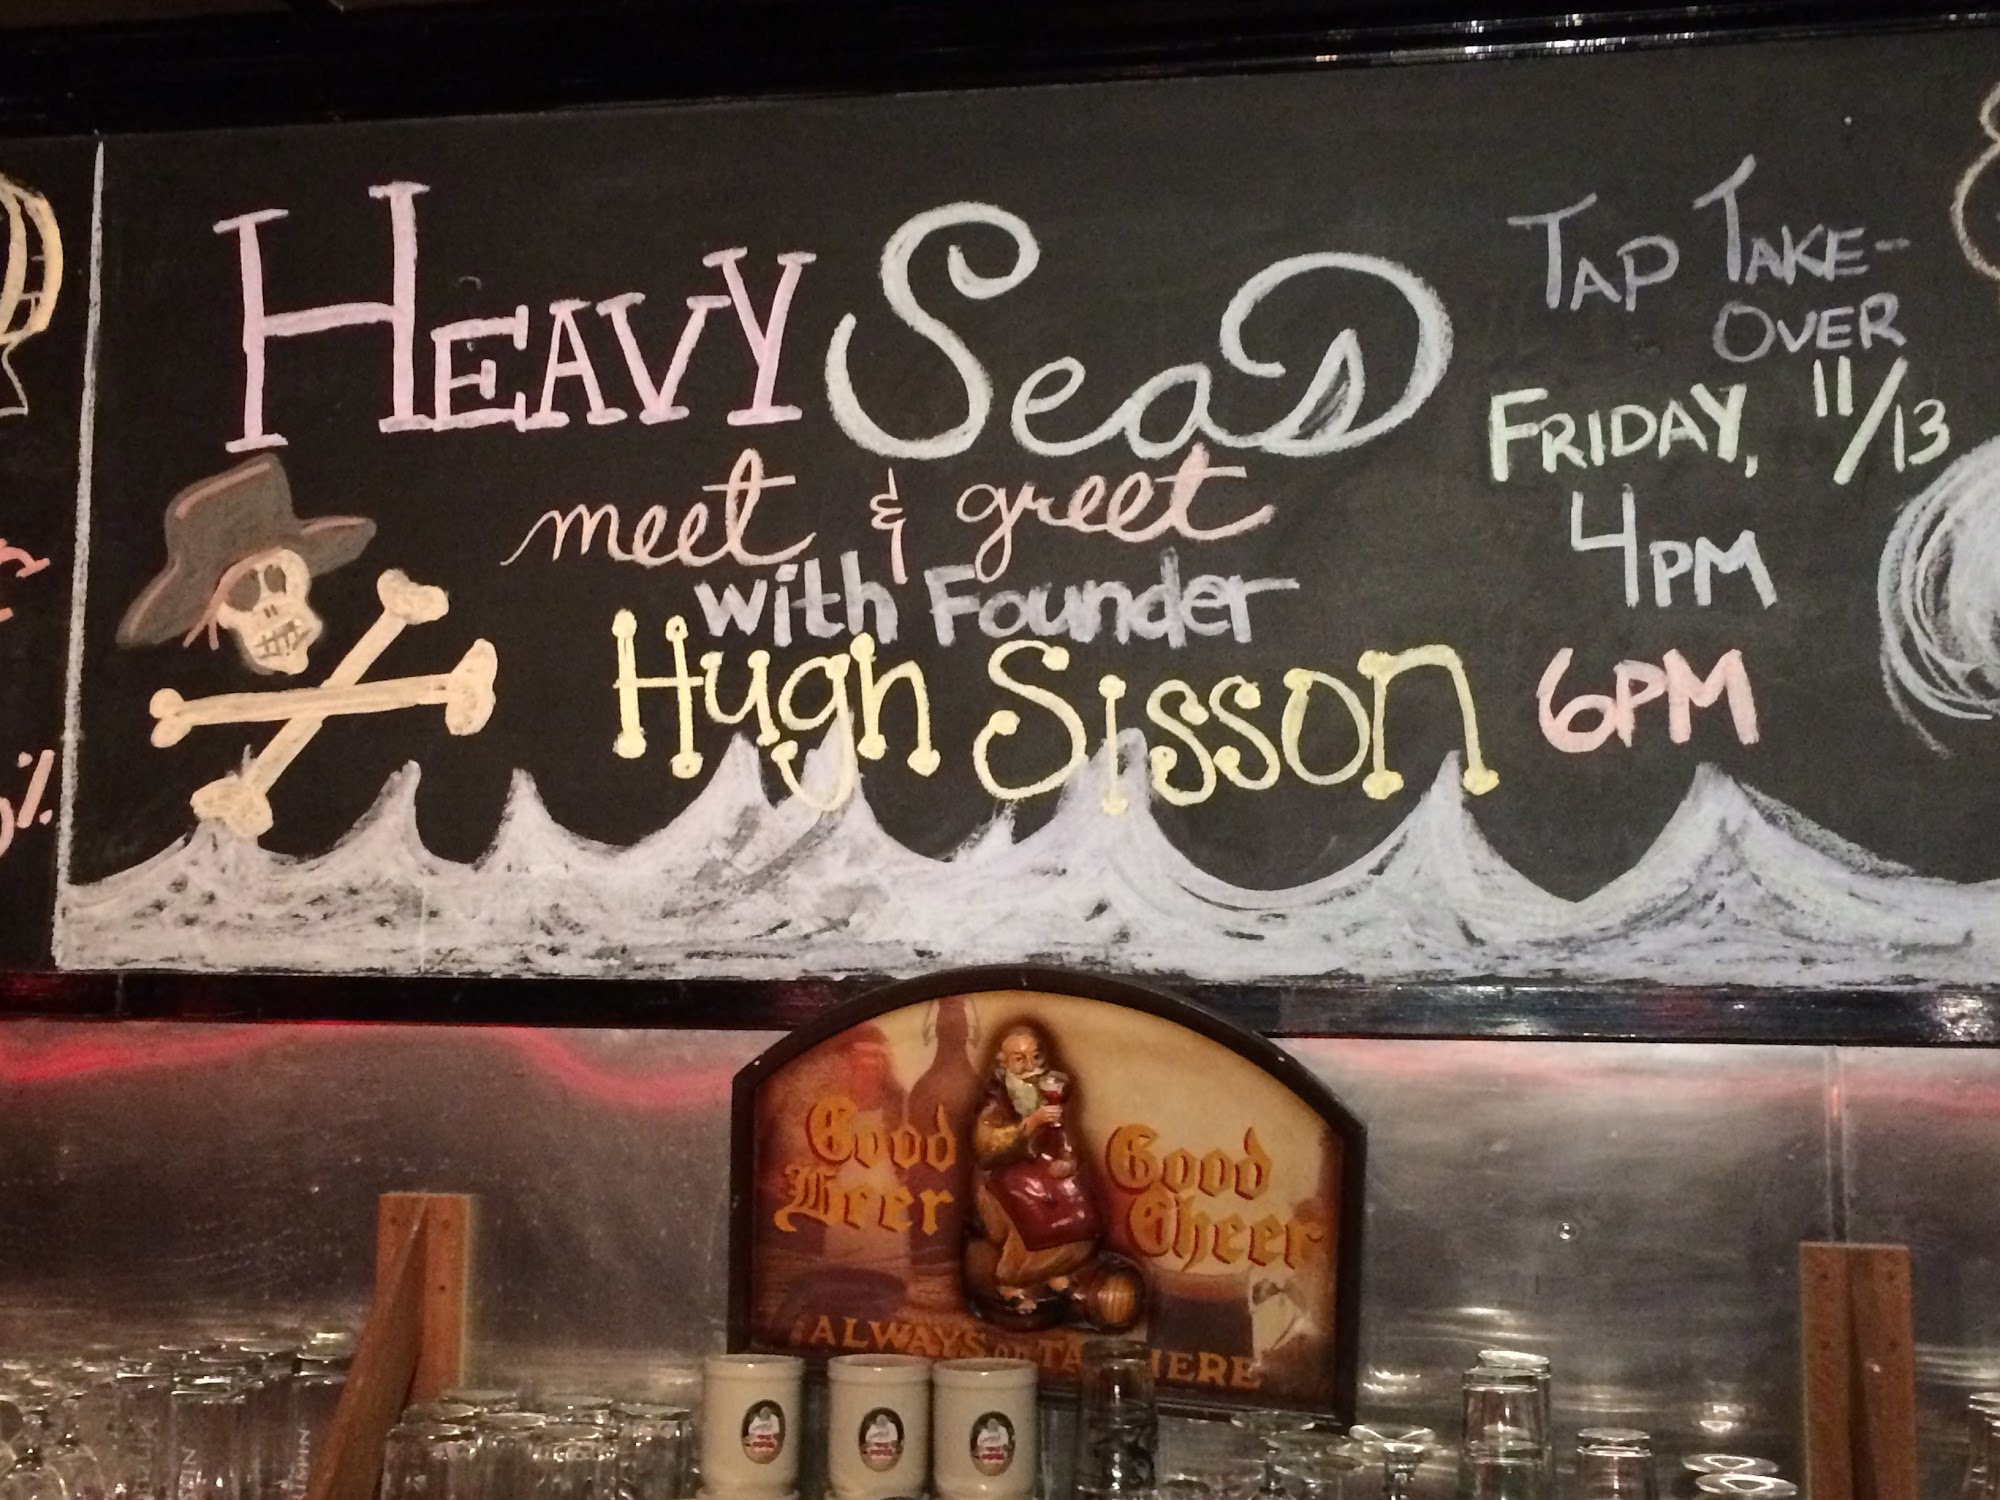 HEAVY SeaS
meet & greet
with Founder
Hugh Sisson
TAP TAKE-
OVER
FRIDAY, 11/13
4PM
6PM
Good Beer
Good Cheer
ALWAYS ON TAP HERE